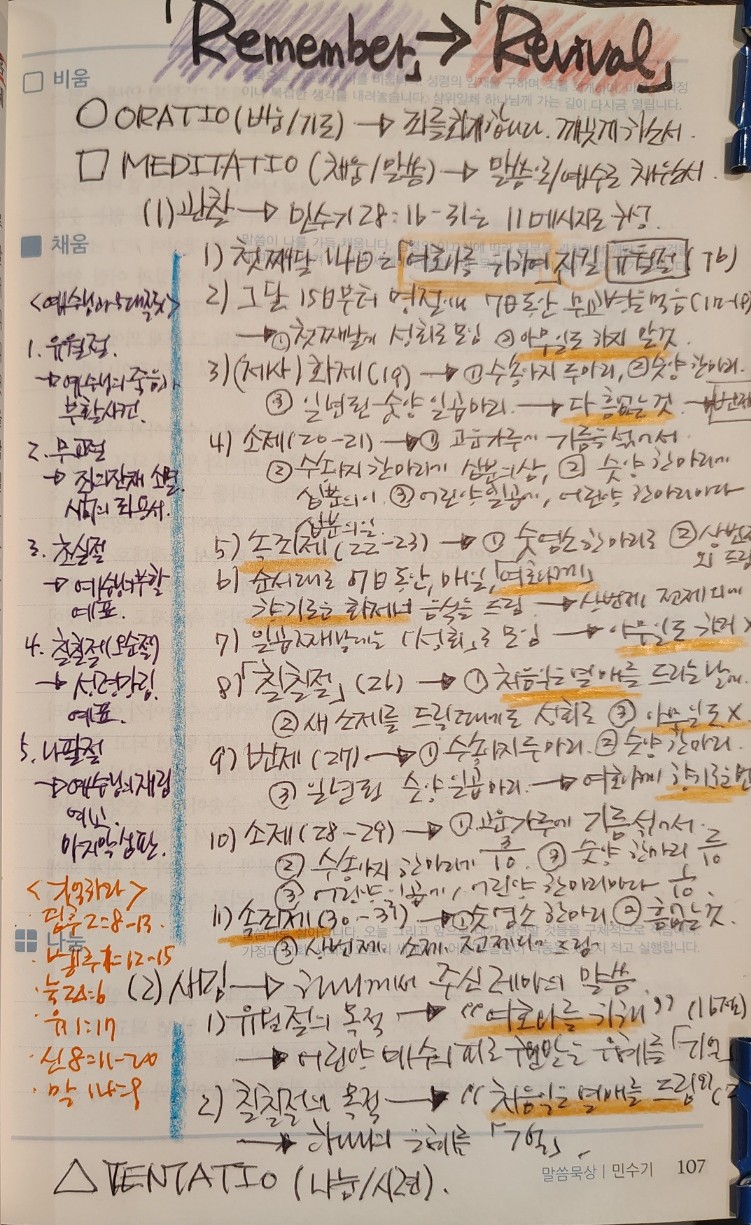 「Remember」→「Revival」
□ 비움
○ ORATIO (비움/기도) → 죄를 회개합니다. 깨끗케 하소서.
□ MEDITATIO (채움/말씀) → 말씀으로/예수로 채우소서.
(1) 관찰 → 민수기 28:16-31은 11 메시지로 구성.
채움
1) 첫째달 14일은 「여호와를 위하여」 지킬 유월절 (16)
2) 그달 15일부터 명절이며 7일동안 무교병을 먹음 (17-18)
→ ① 첫째날에 성회로 모임 ② 아무일도 하지 않것
3) (제사) 화제 (19) → ① 수송아지 두마리, ② 숫양 한마리.
③ 일년된 숫양 일곱마리. → 다 흠없는 것. → 번제
4) 소제 (20-21) → ① 고운가루에 기름을 섞어서
② 수송아지 한마리에 십분의삼, ② 숫양 한마리에
십분의이 ③ 어린양 일곱에, 어린양 한마리마다
십분의일
5) 속죄제 (22-23) → ① 숫염소 한마리로 ② 상번제
외 드림
6) 순서대로 7일동안, 매일, 「여호와께」
향기로운 화제의 음식을 드림 → 상번제, 전제 외에
7) 일곱째날에는 「성회」로 모임 → 아무일도 하지 X
8) 「칠칠절」 (26) → ① 처음익은 열매를 드리는 날에.
② 새 소제를 드릴때에도 성회로 ③ 아무일도 X
9) 번제 (27) → ① 수송아지 두마리. ② 숫양 한마리.
③ 일년된 숫양 일곱마리. → 여호와께 향기로운 번
10) 소제 (28-29) → ① 고운가루에 기름 섞어서.
② 수송아지 한마리에 3/10. ② 숫양 한마리 2/10
③ 어린양 일곱에, 어린양 한마리마다 1/10.
11) 속죄제 (30-31) → ① 숫염소 한마리. ② 흠없는 것.
③ 상번제. 소제. 전제 외에 드림.
<예수님의 5대 절기>
1. 유월절.
→ 예수님의 죽음과
부활사건.
2. 무교절
→ 죄의 잔재 소멸.
3. 초실절
→ 예수님의 부활
예표.
4. 칠칠절(오순절)
→ 성령강림
예표.
5. 나팔절
→ 예수님의 재림
마지막 심판.
<기억하라>
· 딤후 2:8-13
나눔
· 눅 22:6
· 유 1:17
· 신 8:11-20
· 막 14:9
(2) 새김 → 하나님께서 주신 레마의 말씀
1) 유월절의 목적 → "여호와를 위해" (16절)
→ 어린양 예수의 피로 구원받은 은혜를 「기억」
2) 칠칠절의 목적 → "처음익은 열매를 드림"
→ 하나님의 은혜를 「기억」.
△ TENTATIO (나눔/시련).
말씀묵상 | 민수기 107